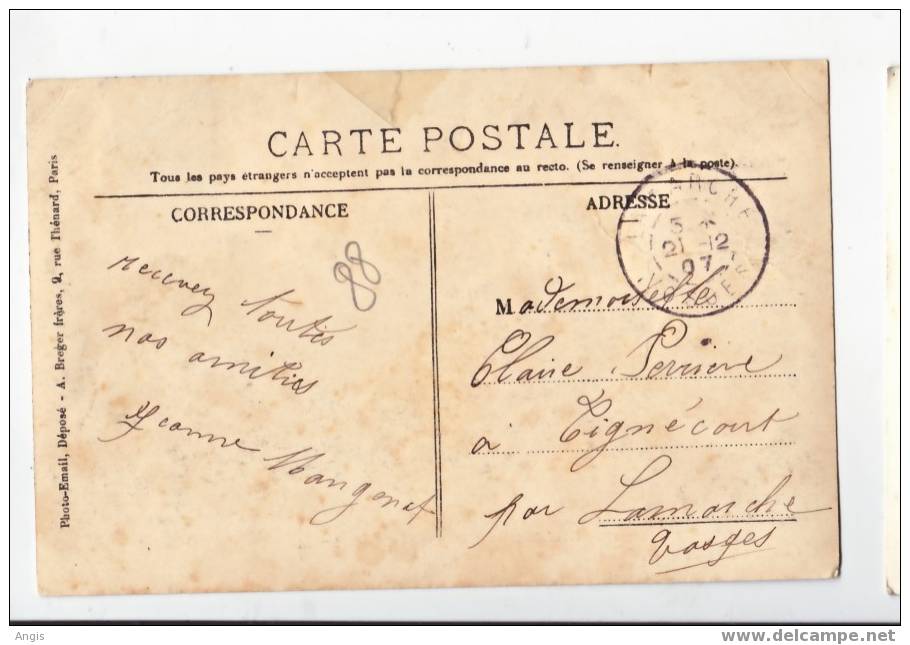 CARTE POSTALE.
Tous les pays étrangers n'acceptent pas la correspondance au recto. (Se renseigner à la poste).
CORRESPONDANCE
ADRESSE
Photo-Email, Déposé - A. Breger frères, 9, rue Thénard, Paris
recevez toutes
nos amitiés
Jeanne Mangenot
88
LAMARCHE
5
21 -12
07
VOSGES
Mademoiselle
Claire Perrière
à Tignécourt
par Lamarche
Vosges
Angis
www.delcampe.net